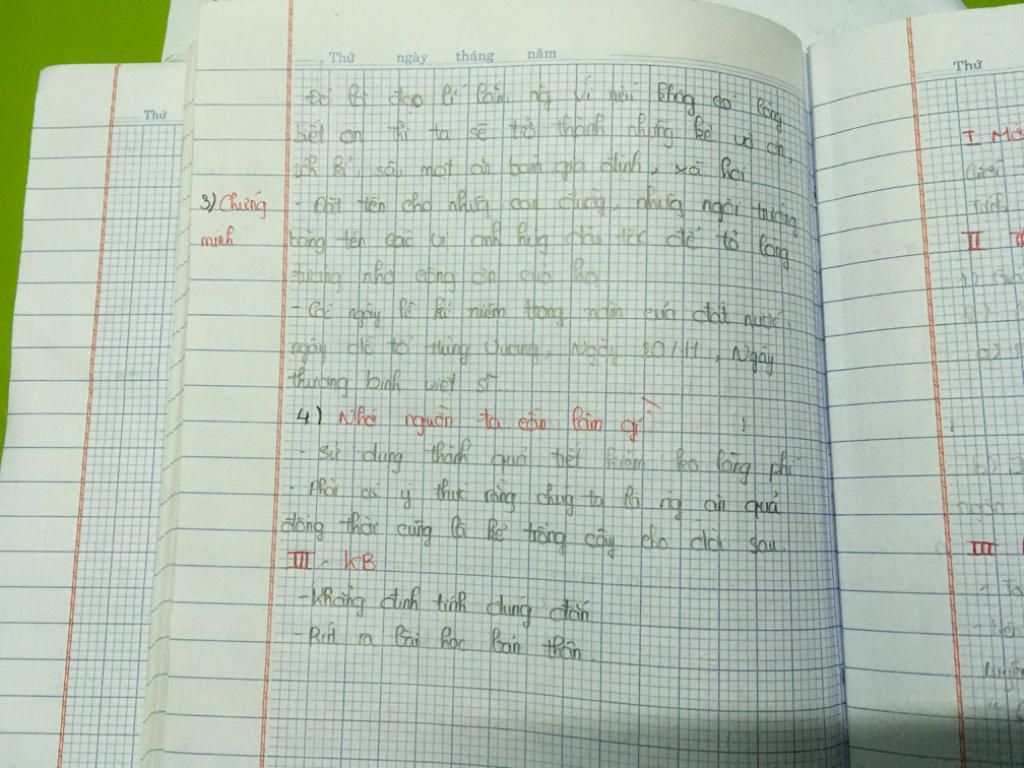 Thứ
Thứ ngày tháng năm
Thứ
Đó là đạo lí làm ng vì nếu không có lòng
biết ơn thì ta sẽ trở thành những kẻ vô ơn,
ích kỉ, sâu mọt ăn bám gia đình, xã hội
3) Chứng minh
- Đặt tên cho những con đường, những ngôi trường
bằng tên các vị anh hùng dân tộc để tỏ lòng
tưởng nhớ công ơn của họ
- Các ngày lễ kỉ niệm trong năm của đất nước.
ngày giỗ tổ Hùng Vương, Ngày 20/11, Ngày
thương binh liệt sĩ
4) Nhớ nguồn ta cần làm gì
- sử dụng thành quả tiết kiệm ko lãng phí
- Phải có ý thức rằng chúng ta là ng ăn quả
đồng thời cũng là kẻ trồng cây cho đời sau.
III - KB
- Khẳng định tính đúng đắn
- Rút ra bài học bản thân.
I Mở
II
III